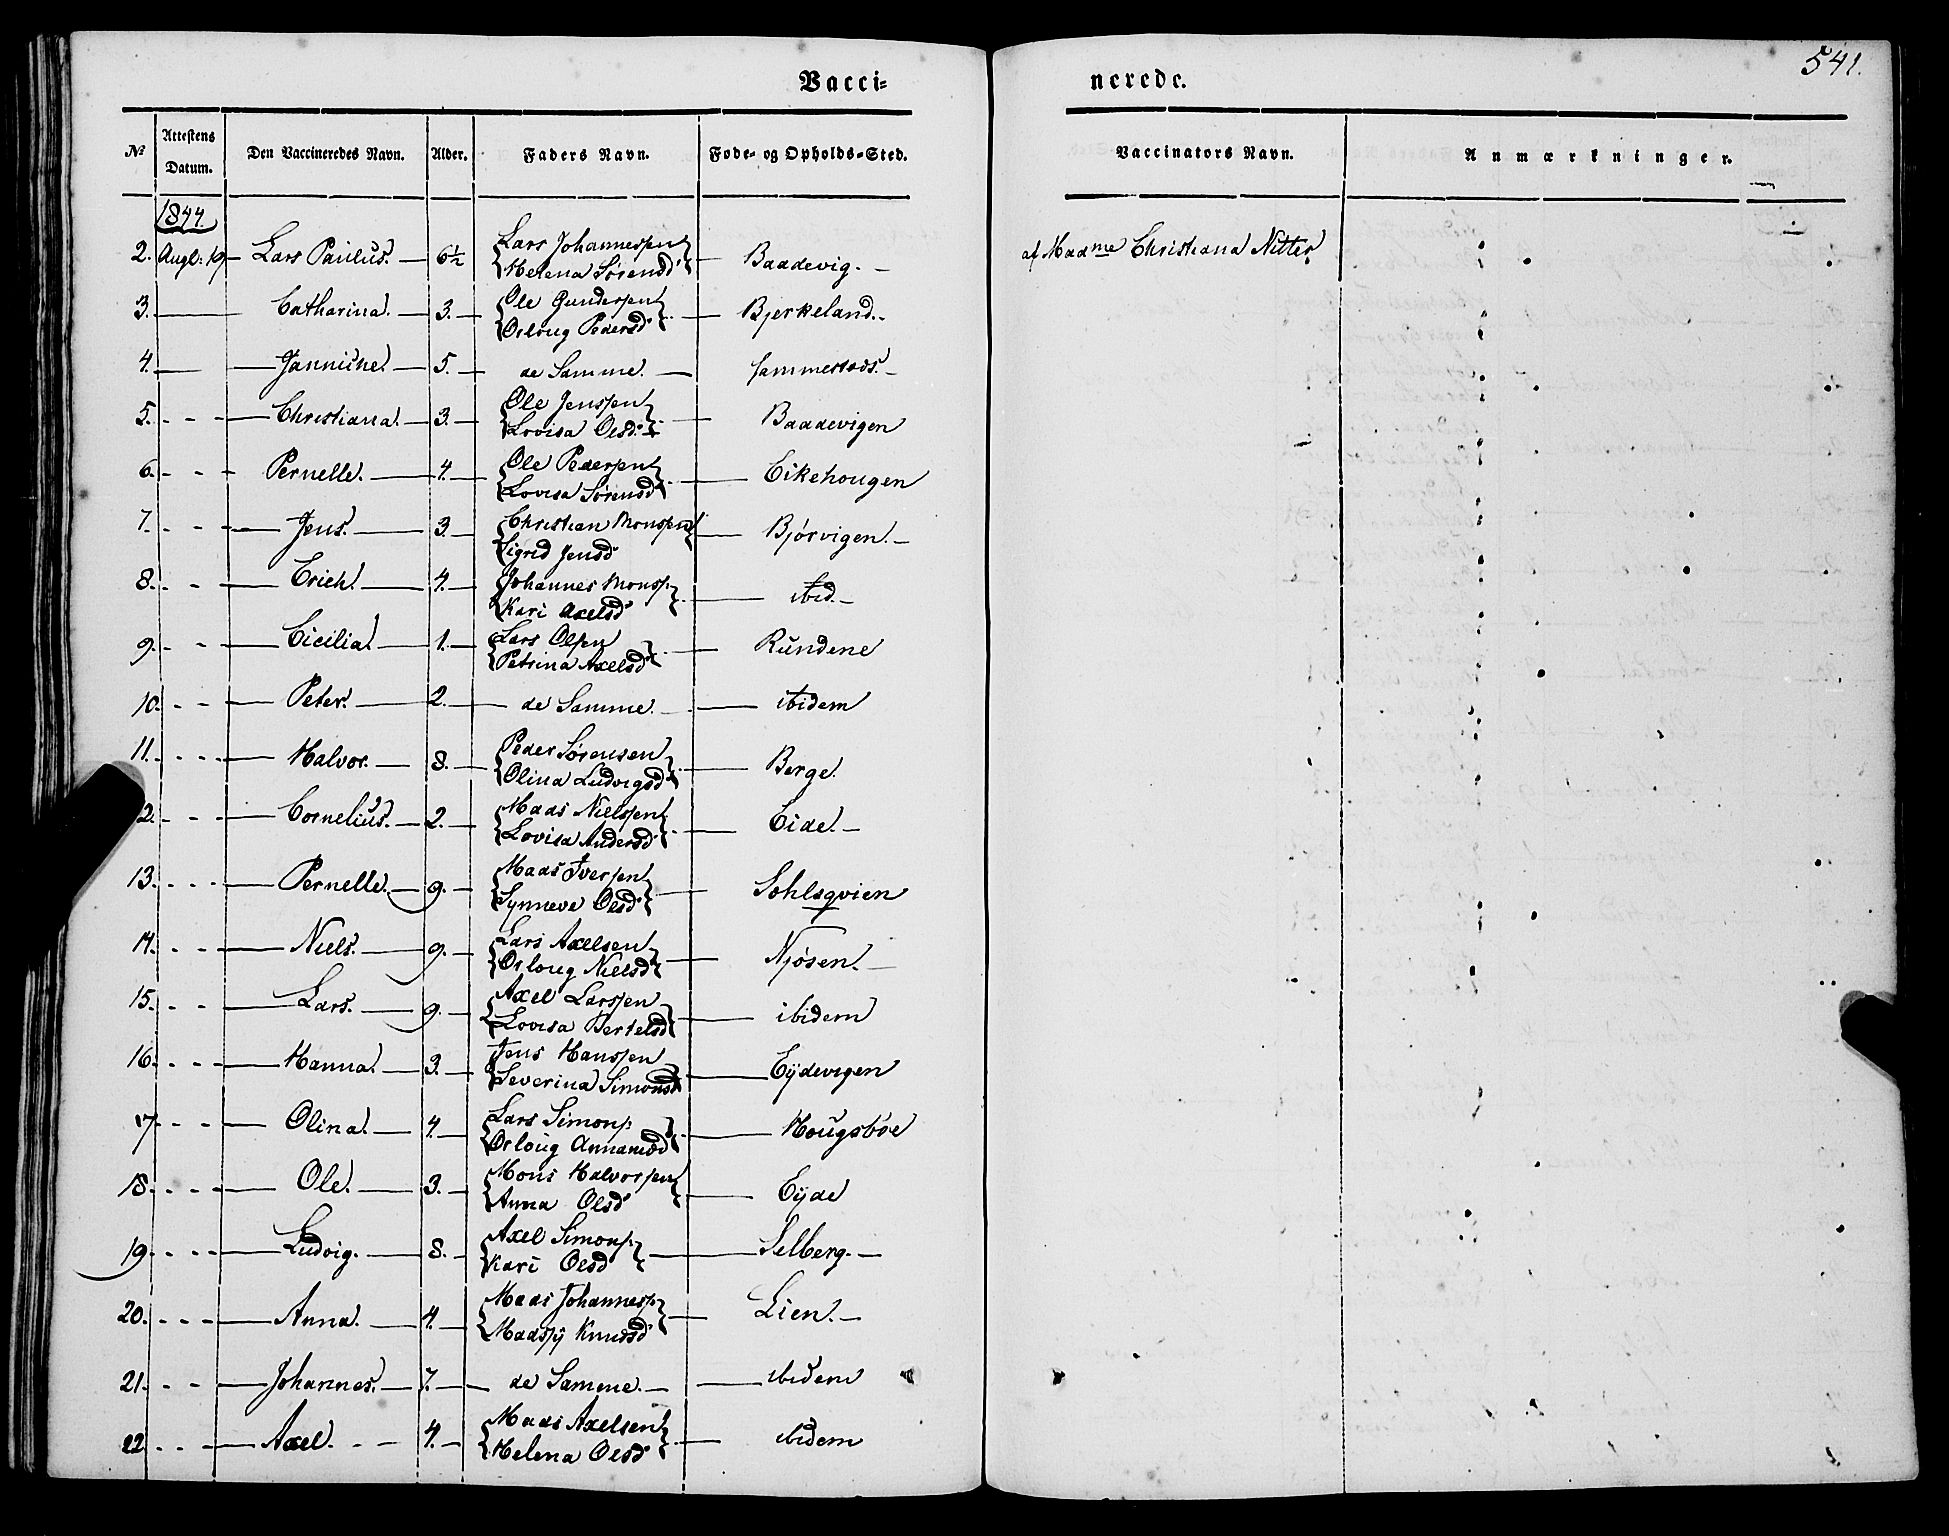 541.
Vacci-
nerede.
№ Attestens Datum. Den Vaccineredes Navn. Alder. Faders Navn. Føde- og Opholds-Sted. Vaccinators Navn. Anmærkninger.
1844.
2. Aug: 19 Lars Paulus. 6½ Lars Johannessen Baadevig. af Madme Christiana Nitter
Helena Sørensd
3. Catharina. 3. Ole Gundersen Bjerkeland.
Orloug Pedersd
4. Jannicke. 5. de Samme. sammesteds.
5. Christiana. 3. Ole Jenssen Baadevigen
Lovisa Olsd.
6. Pernelle. 4. Ole Pedersen Eikehougen
Lovisa Sørensd
7. Jens. 3. Christian Monssen Bjørvigen.
Sigrid Jensd
8. Erich. 4. Johannes Monss. ibid.
Kari Axelsd
9. Cicilia. 1. Lars Olsen Rundene
Petrina Axelsd
10. Peter. 2. de Samme. ibidem
11. Halvor. 8. Peder Sørensen Berge.
Olina Ludvigsd
12. Cornelius. 2. Mads Nielssen Eide.
Lovisa Andersd
13. Pernelle. 9. Mads Iversen Sohlsqvien
Synneve Olsd
14. Niels. 9. Lars Axelsen Njøsen.
Orloug Nielsd
15. Lars. 9. Axel Larssen ibidem
Lovisa Bertelsd
16. Hanna. 3. Jens Hanssen Eydevigen
Severina Simonsd
17 Olina. 4. Lars Simons. Hougsbøe
Orloug Annamsd
18. Ole. 3. Mons Halvorsen Eyde
Anna Olsd
19. Ludvig. 8. Axel Simons. Selberg.
Kari Olsd
20. Anna. 4. Mads Johanness. Lien.
Madssy Knudsd
21. Johannes. 7. de Samme. ibidem
22 Axel. 4. Mads Axelsen ibidem
Helena Olsd